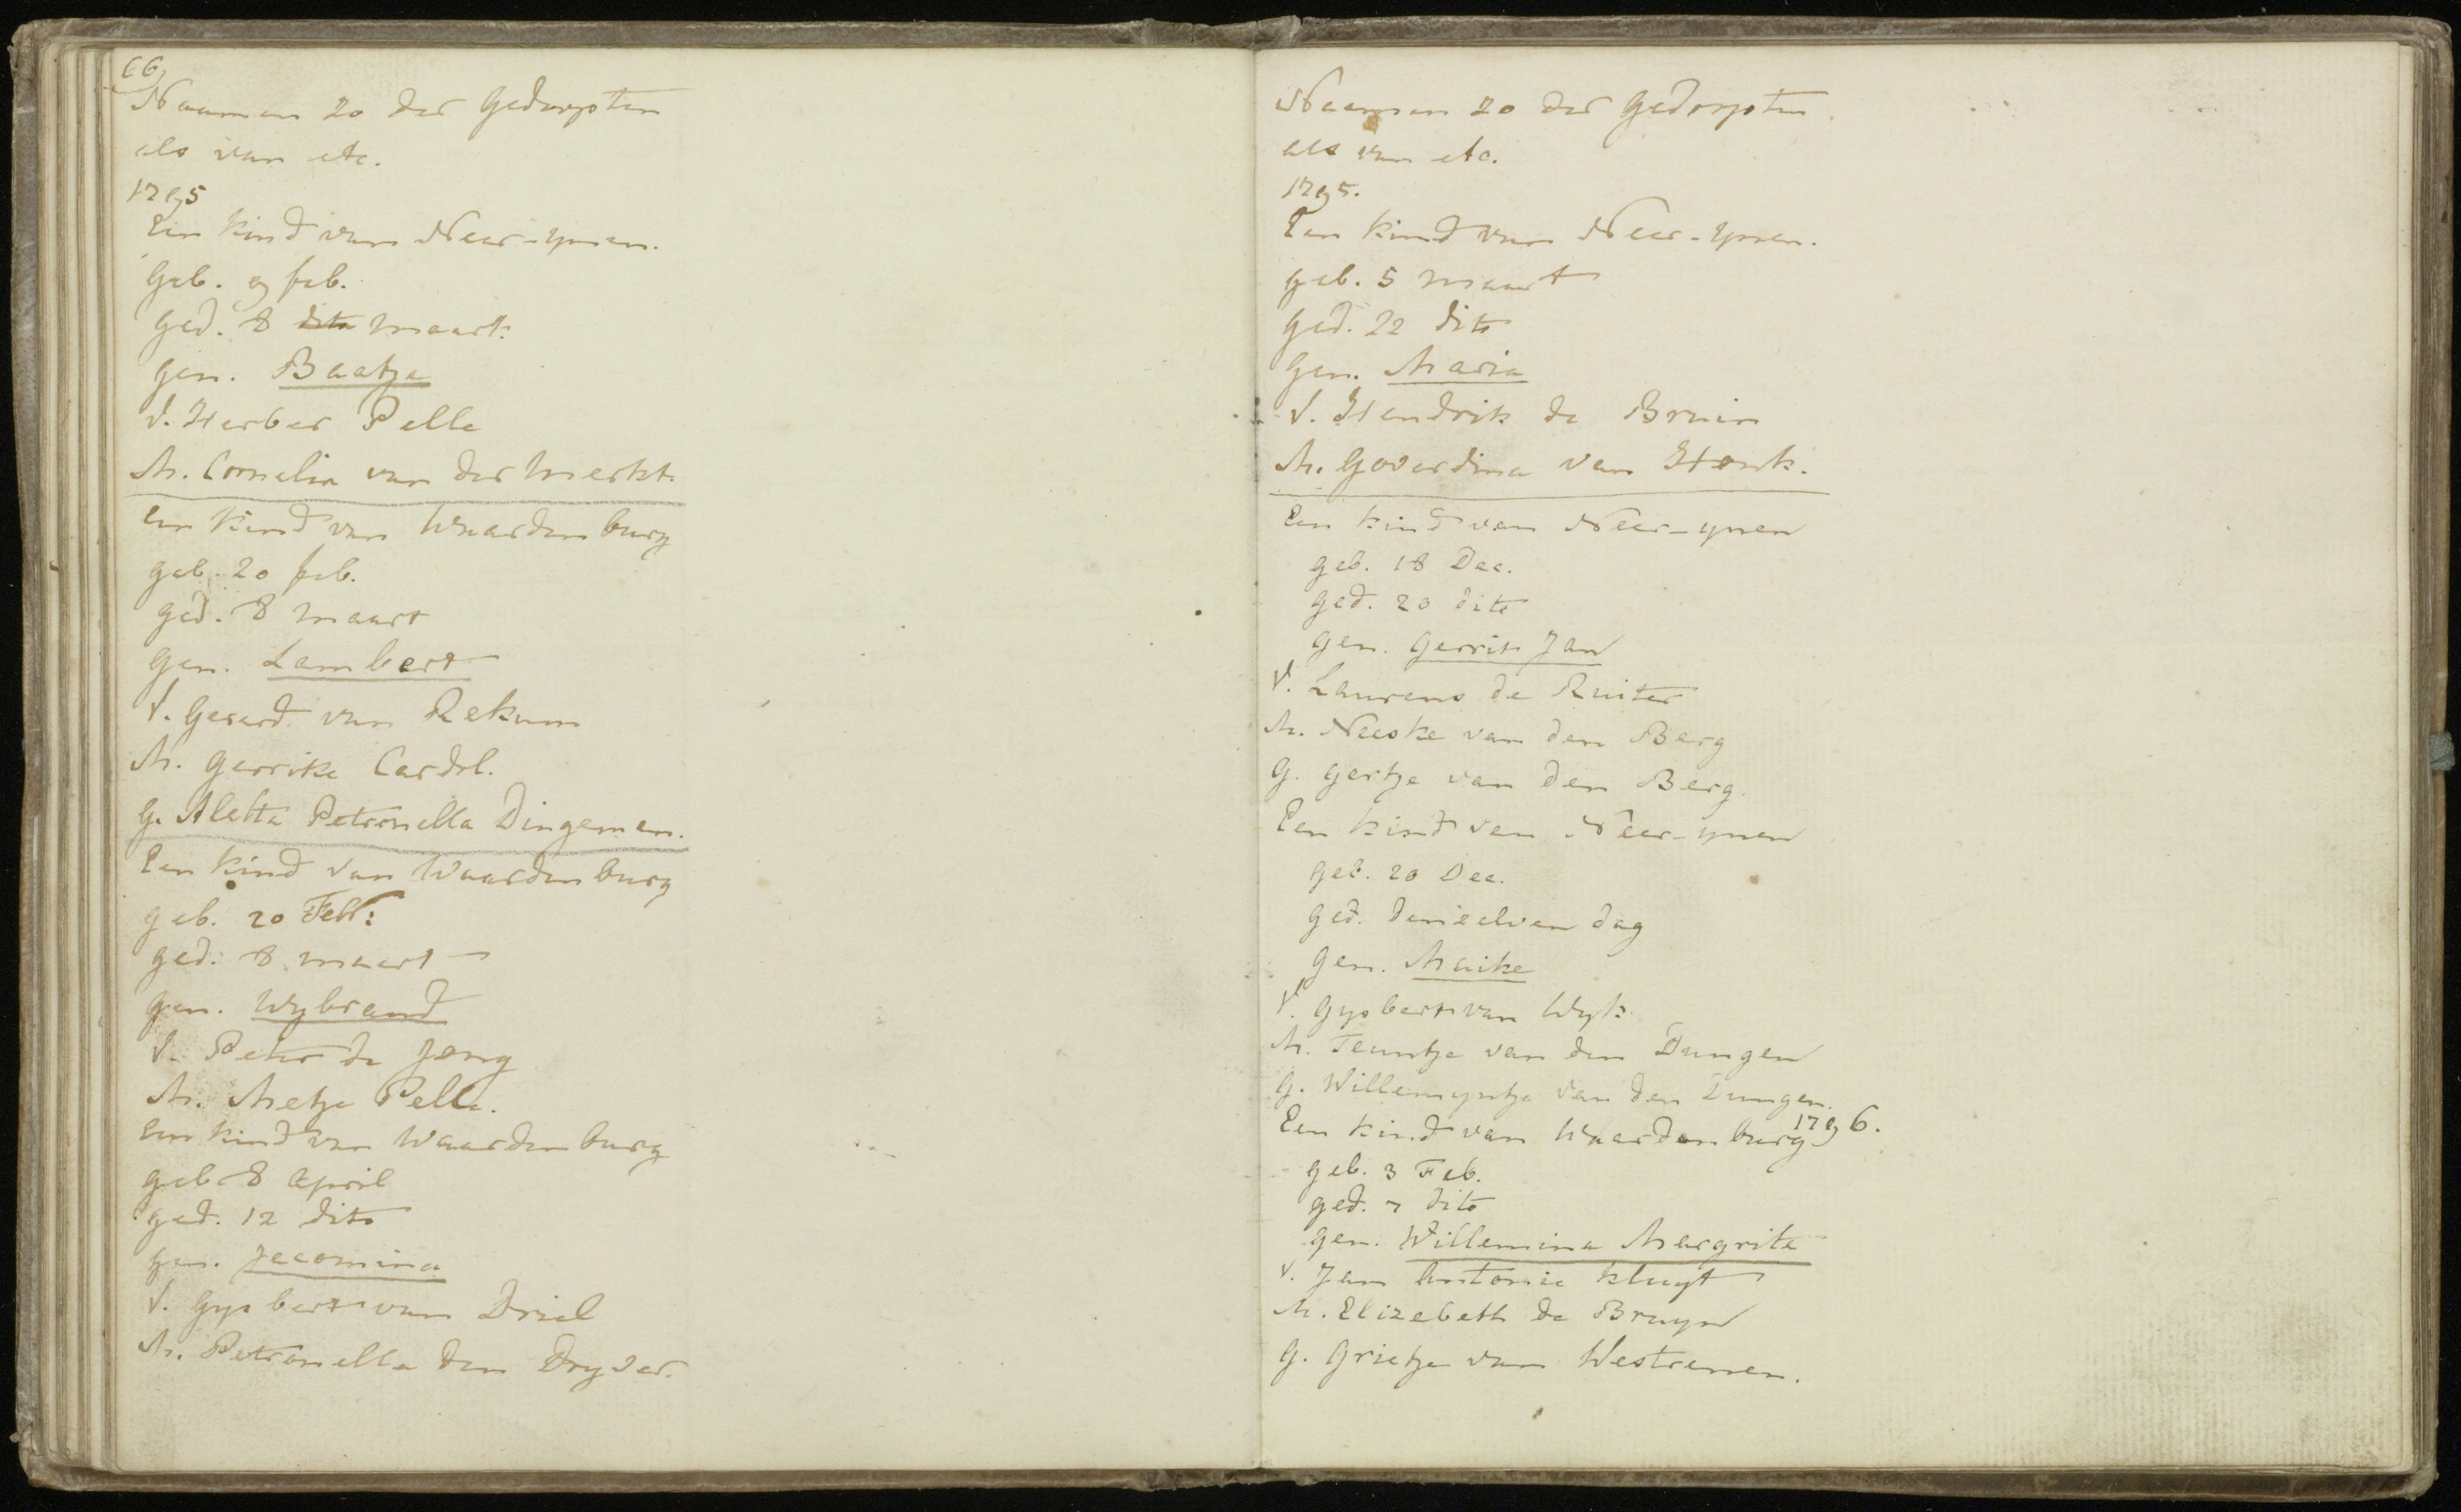 66
Naamen zo der Gedoopten
als van etc.
1795
Een kind van Neer-ynen.
Geb. 9 feb.
Ged. 8 dito maart.
gen. Baatje
V. Herber Pelle
M. Cornelia van der Merkt.
Een kind van Waardenburg
geb. 20 feb.
ged. 8 maart
gen. Lambert
V. Gerard van Rekum
M. Gerrike Cardol.
G. Aletta Petronella Dingeman.
Een kind van Waardenburg
geb. 20 Feb:
ged. 8 maart
gen. Wybrand
V. Peter de Jong
M. Metje Pelle.
Een kind van Waardenburg
geb 8 April
ged. 12 dito
gen. Jacomina
V. Gysbert van Driel
M. Petronella den Dryver.
Naamen zo der Gedoopten
als van etc.
1795.
Een kind van Neer-ynen.
geb. 5 maart
ged. 22 dito
gen. Maria
V. Hendrik de Bruin
M. Goverdina van Honk.
Een kind van Neer-ynen
geb. 18 Dec.
ged. 20 dito
gen. Gerrit Jan
V. Laurens de Ruiter
M. Neeske van den Berg
G. Gertje van den Berg.
Een kind van Neer-ynen
geb. 20 Dec.
ged. denzelven dag
gen. Maike
V. Gysbert van Wyk
M. Teuntje van den Dungen
G. Willemyntje van den Dungen.
1796.
Een kind van Waardenburg
geb. 3 Feb.
ged. 7 dito
gen. Willemina Margrita
V. Jan Antonie Klugt
M. Elizebeth de Bruyn
G. Grietje van Westrenen.